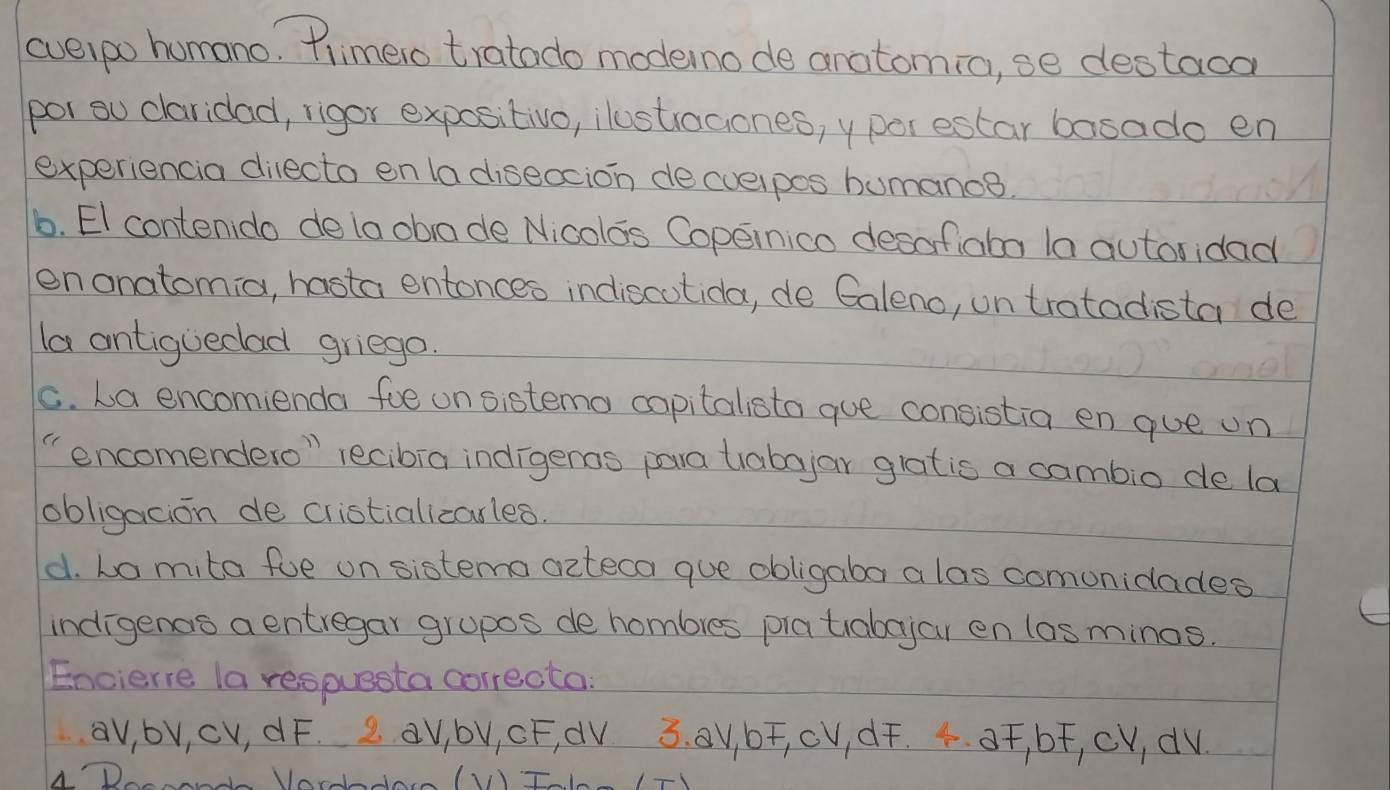 cuerpo humano. Primero tratado moderno de anatomía, se destaca
por su claridad, rigor expositivo, ilustraciones, y por estar basado en
experiencia directa en la disección de cuerpos humanos.
b. El contenido de la obra de Nicolás Copérnico desafiaba la autoridad
en anatomía, hasta entonces indiscutida, de Galeno, un tratadista de
la antigüedad griega.
c. La encomienda fue un sistema capitalista que consistía en que un
"encomendero" recibía indígenas para trabajar gratis a cambio de la
obligación de cristializarles.
d. La mita fue un sistema azteca que obligaba a las comunidades
indígenas a entregar grupos de hombres pra trabajar en las minas.
Encierre la respuesta correcta:
1. aV, bV, cV, dF. 2. aV, bV, cF, dV 3. aV, bF, cV, dF. 4. aF, bF, cV, dV.
4. Responda Verdadero (V) Falso (F)